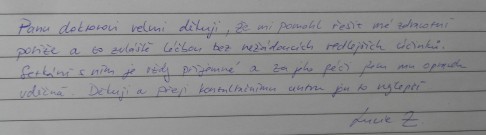 Panu doktorovi velmi děkuji, že mi pomohl řešit mé zdravotní
potíže a to zvláště léčbou bez nežádoucích vedlejších účinků.
Setkání s ním je vždy příjemné a za jeho péči jsem mu opravdu
vděčná. Děkuji a přeji konzultačnímu centru jen to nejlepší
Lucie Z